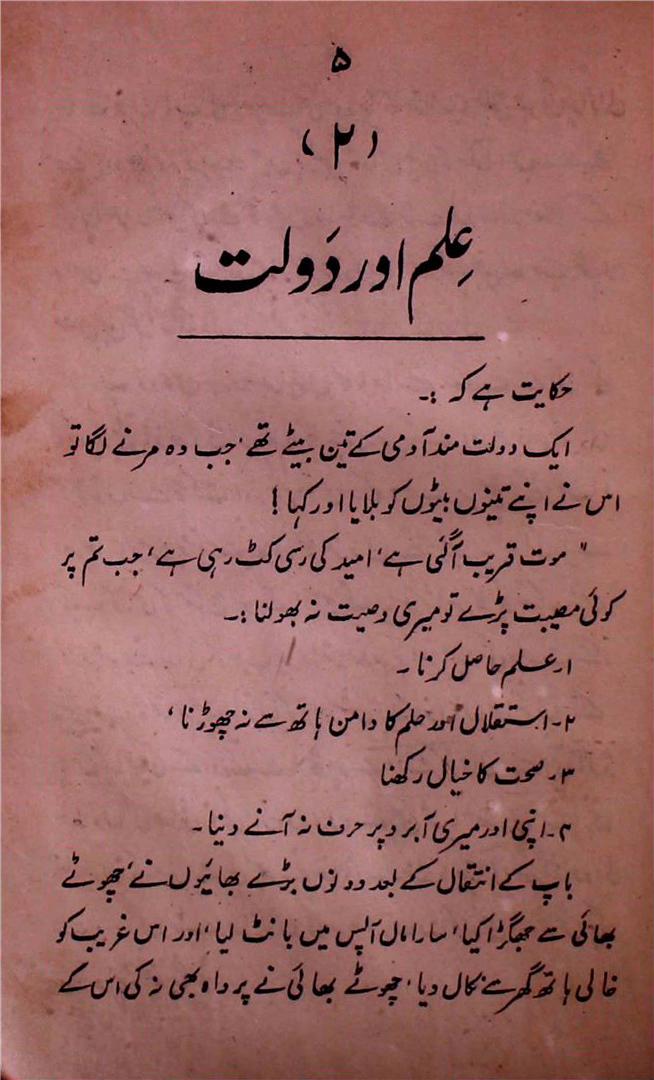 ۵
(۲)
عِلم اور دَولت
حکایت ہے کہ :۔
ایک دولت مند آدمی کے تین بیٹے تھے، جب وہ مرنے لگا تو
اس نے اپنے تینوں بیٹوں کو بلایا اور کہا!
" موت قریب آگئی ہے، امید کی رسی کٹ رہی ہے، جب تم پر
کوئی مصیبت پڑے تو میری وصیت نہ بھولنا :۔
۱۔ علم حاصل کرنا ۔
۲۔ استقلال اور حلم کا دامن ہاتھ سے نہ چھوڑنا،
۳۔ صحت کا خیال رکھنا
۴۔ اپنی اور میری آبرو پر حرف نہ آنے دینا۔
باپ کے انتقال کے بعد دونوں بڑے بھائیوں نے، چھوٹے
بھائی سے جھگڑا کیا، سارا مال آپس میں بانٹ لیا، اور اس غریب کو
خالی ہاتھ گھر سے نکال دیا، چھوٹے بھائی نے پرواہ بھی نہ کی اس کے